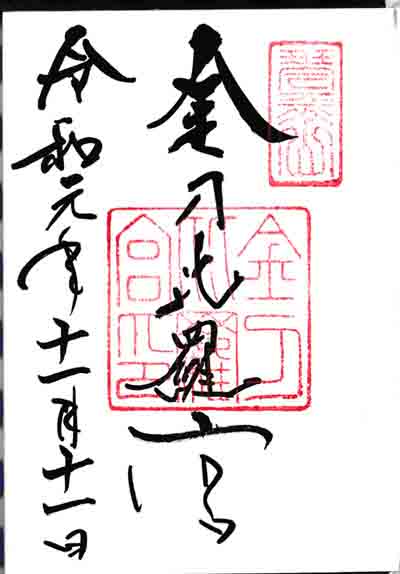 金刀比羅宮
金刀
比羅
宮印
令和元年十一月十一日